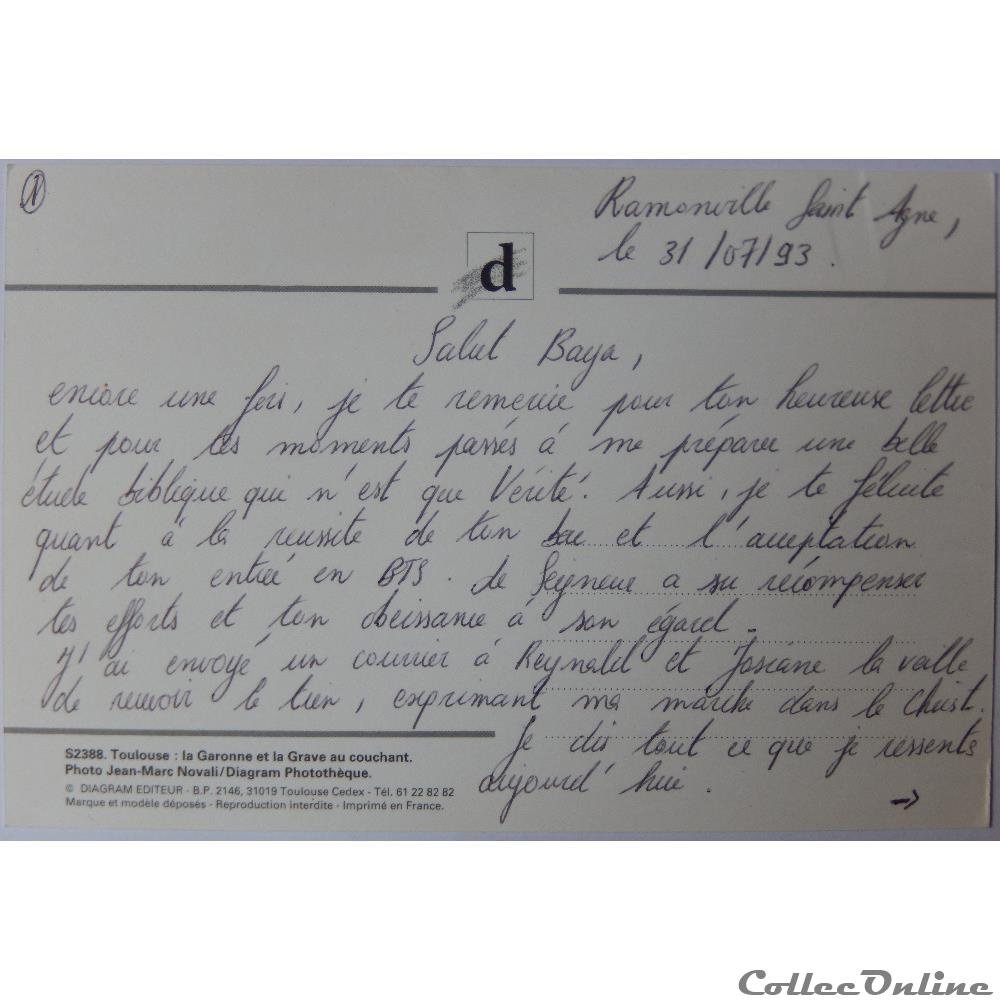 1
Ramonville Saint Agne,
le 31/07/93.
d
Salut Baya,
encore une fois, je te remercie pour ton heureuse lettre
et pour tes moments passés à me préparer une belle
étude biblique qui n'est que Vérité. Aussi, je te félicite
quant à la reussite de ton bac et l'acceptation
de ton entrée en BTS. Le Seigneur a su récompenser
tes efforts et ton obeissance à son égard.
J'ai envoyé un courrier à Reynald et Josiane la veille
de recevoir le tien, exprimant ma marche dans le Christ.
Je dis tout ce que je ressents
aujourd'hui.
→
S2388. Toulouse : la Garonne et la Grave au couchant.
Photo Jean-Marc Novali/Diagram Photothèque.
© DIAGRAM EDITEUR - B.P. 2146, 31019 Toulouse Cedex - Tél. 61 22 82 82
Marque et modèle déposés - Reproduction interdite - Imprimé en France.
CollecOnline